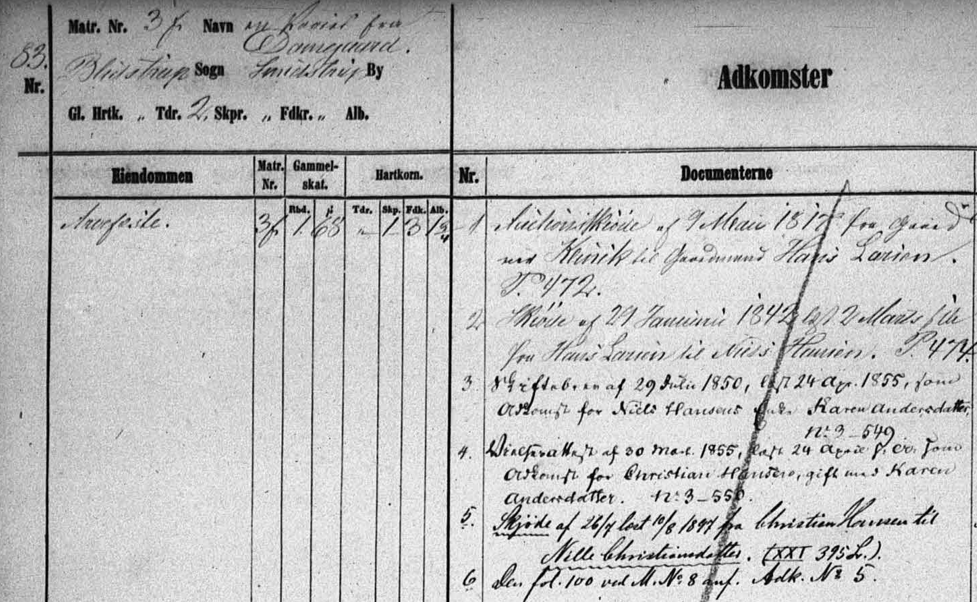 83.
Nr.
Matr. Nr. 3 f Navn en Parcel fra
Damgaard.
Blidstrup Sogn Smidstrup By
Gl. Hrtk. „ Tdr. 2, Skpr. „ Fdkr. „ Alb.
Adkomster
Eiendommen
Matr. Nr.
Gammel-skat.
Hartkorn.
Nr.
Documenterne
Rbd. β Tdr. Skp. Fdk. Alb.
Arvefæste. 3f 1 68 „ 1 3 1 3/4
1 Auctionsskiöde af 9 Mai 1817 fra Gaard
md Henrik til Gaardmand Hans Larsen.
P. 472.
2 Skiöde af 29 Januar 1842 læst 2 Marts
fra Hans Larsen til Niels Hansen. P. 474.
3 Skiftebrev af 29 Julii 1850, læst 24 Apr. 1855, som
Adkomst for Niels Hansens Enke Karen Andersdatter,
No 3 - 549
4. Vielsesattest af 30 Mart. 1855, læst 24 April s. A., som
Adkomst for Christian Hansen, gift med Karen
Andersdatter. No 3 - 550.
5. Skjøde af 26/7 læst 10/8 1897 fra Christian Hansen til
Nille Christiansdatter. (XXI 395 L.).
6 Den fol. 100 ved M. No 8 anf. Adk. No 5.